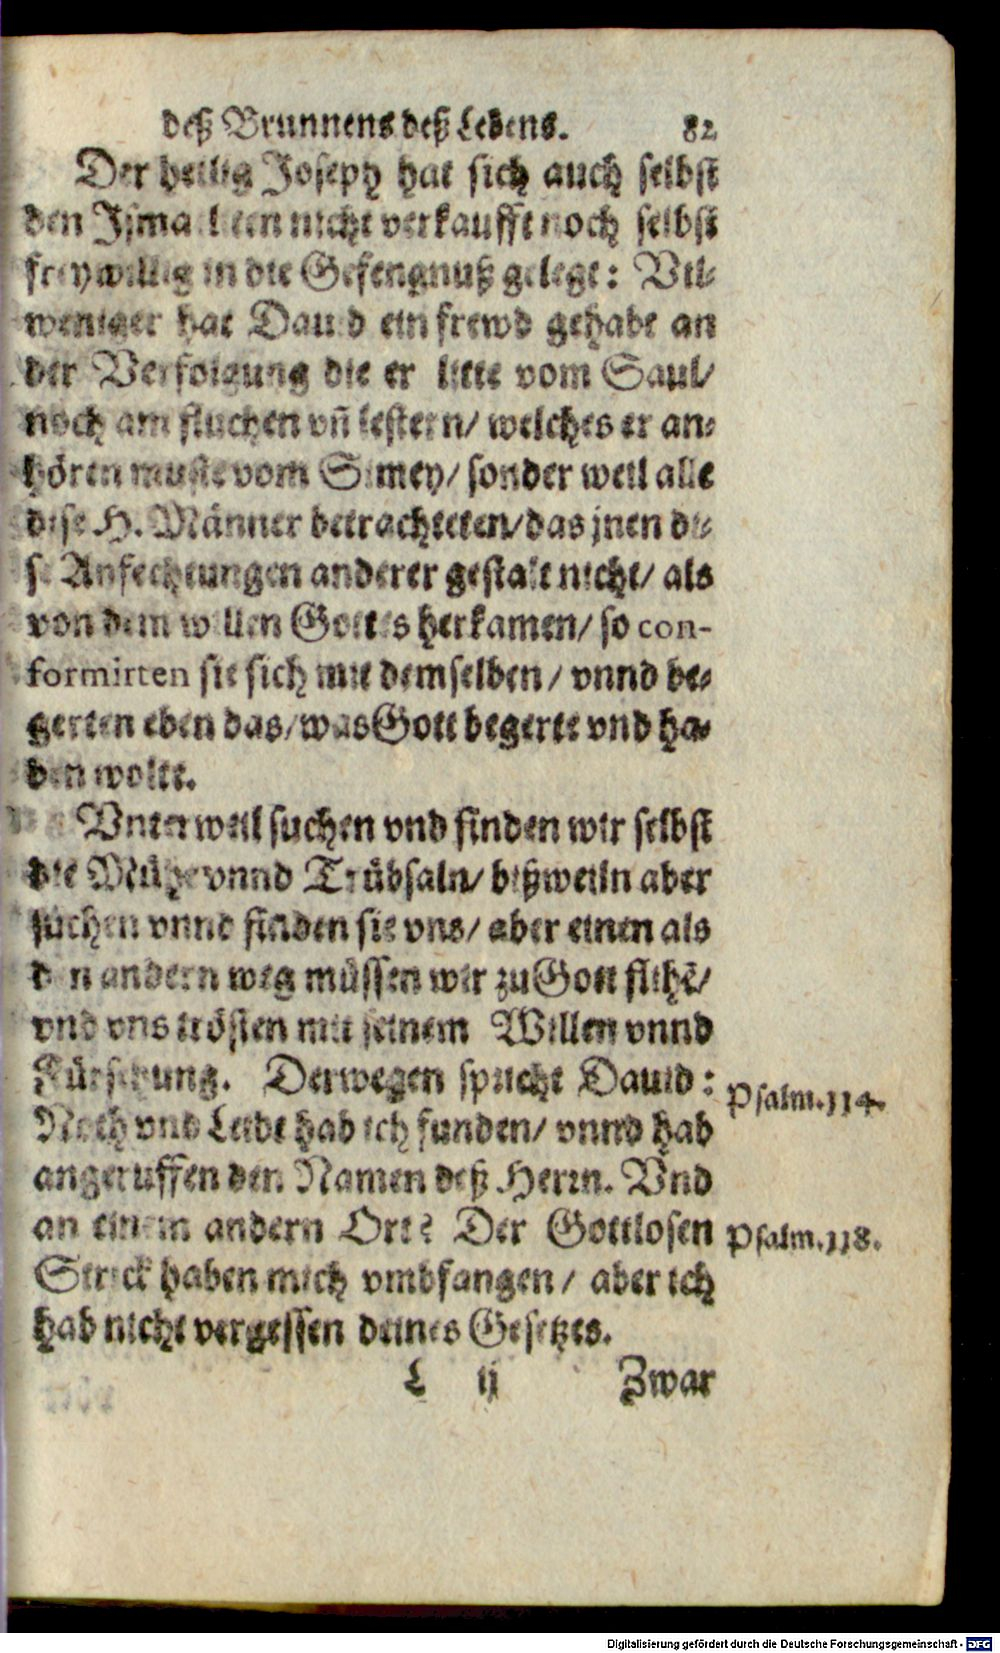 deß Brunnens deß Lebens. 82
Der heilig Joseph hat sich auch selbst
den Ismaeliten nicht verkaufft noch selbst
freywillig in die Gefengnuß gelegt: Vil-
weniger hat Dauid ein frewd gehabt an
der Verfolgung die er litte vom Saul/
noch am fluchen vñ lestern/ welches er an-
hören muste vom Simey/ sonder weil alle
dise H. Männer betrachteten/ das jnen di-
se Anfechtungen anderer gestalt nicht/ als
von dem willen Gottes herkamen/ so con-
formirten sie sich mit demselben/ vnnd be-
gerten eben das/ was Gott begerte vnd ha-
ben wolte.
Vnterweil suchen vnd finden wir selbst
die Mühe vnnd Trübsaln/ bißweiln aber
suchen vnnd finden sie vns/ aber einen als
den andern weg müssen wir zu Gott fliehẽ/
vnd vns trösten mit seinem Willen vnnd
Fürsehung. Derwegen spricht Dauid: Psalm.114.
Noth vnd Leidt hab ich funden/ vnnd hab
angeruffen den Namen deß Herrn. Vnd
an einem andern Ort? Der Gottlosen Psalm.118.
Strick haben mich vmbfangen/ aber ich
hab nicht vergessen deines Gesetzes.
L ij Zwar
Digitalisierung gefördert durch die Deutsche Forschungsgemeinschaft - DFG